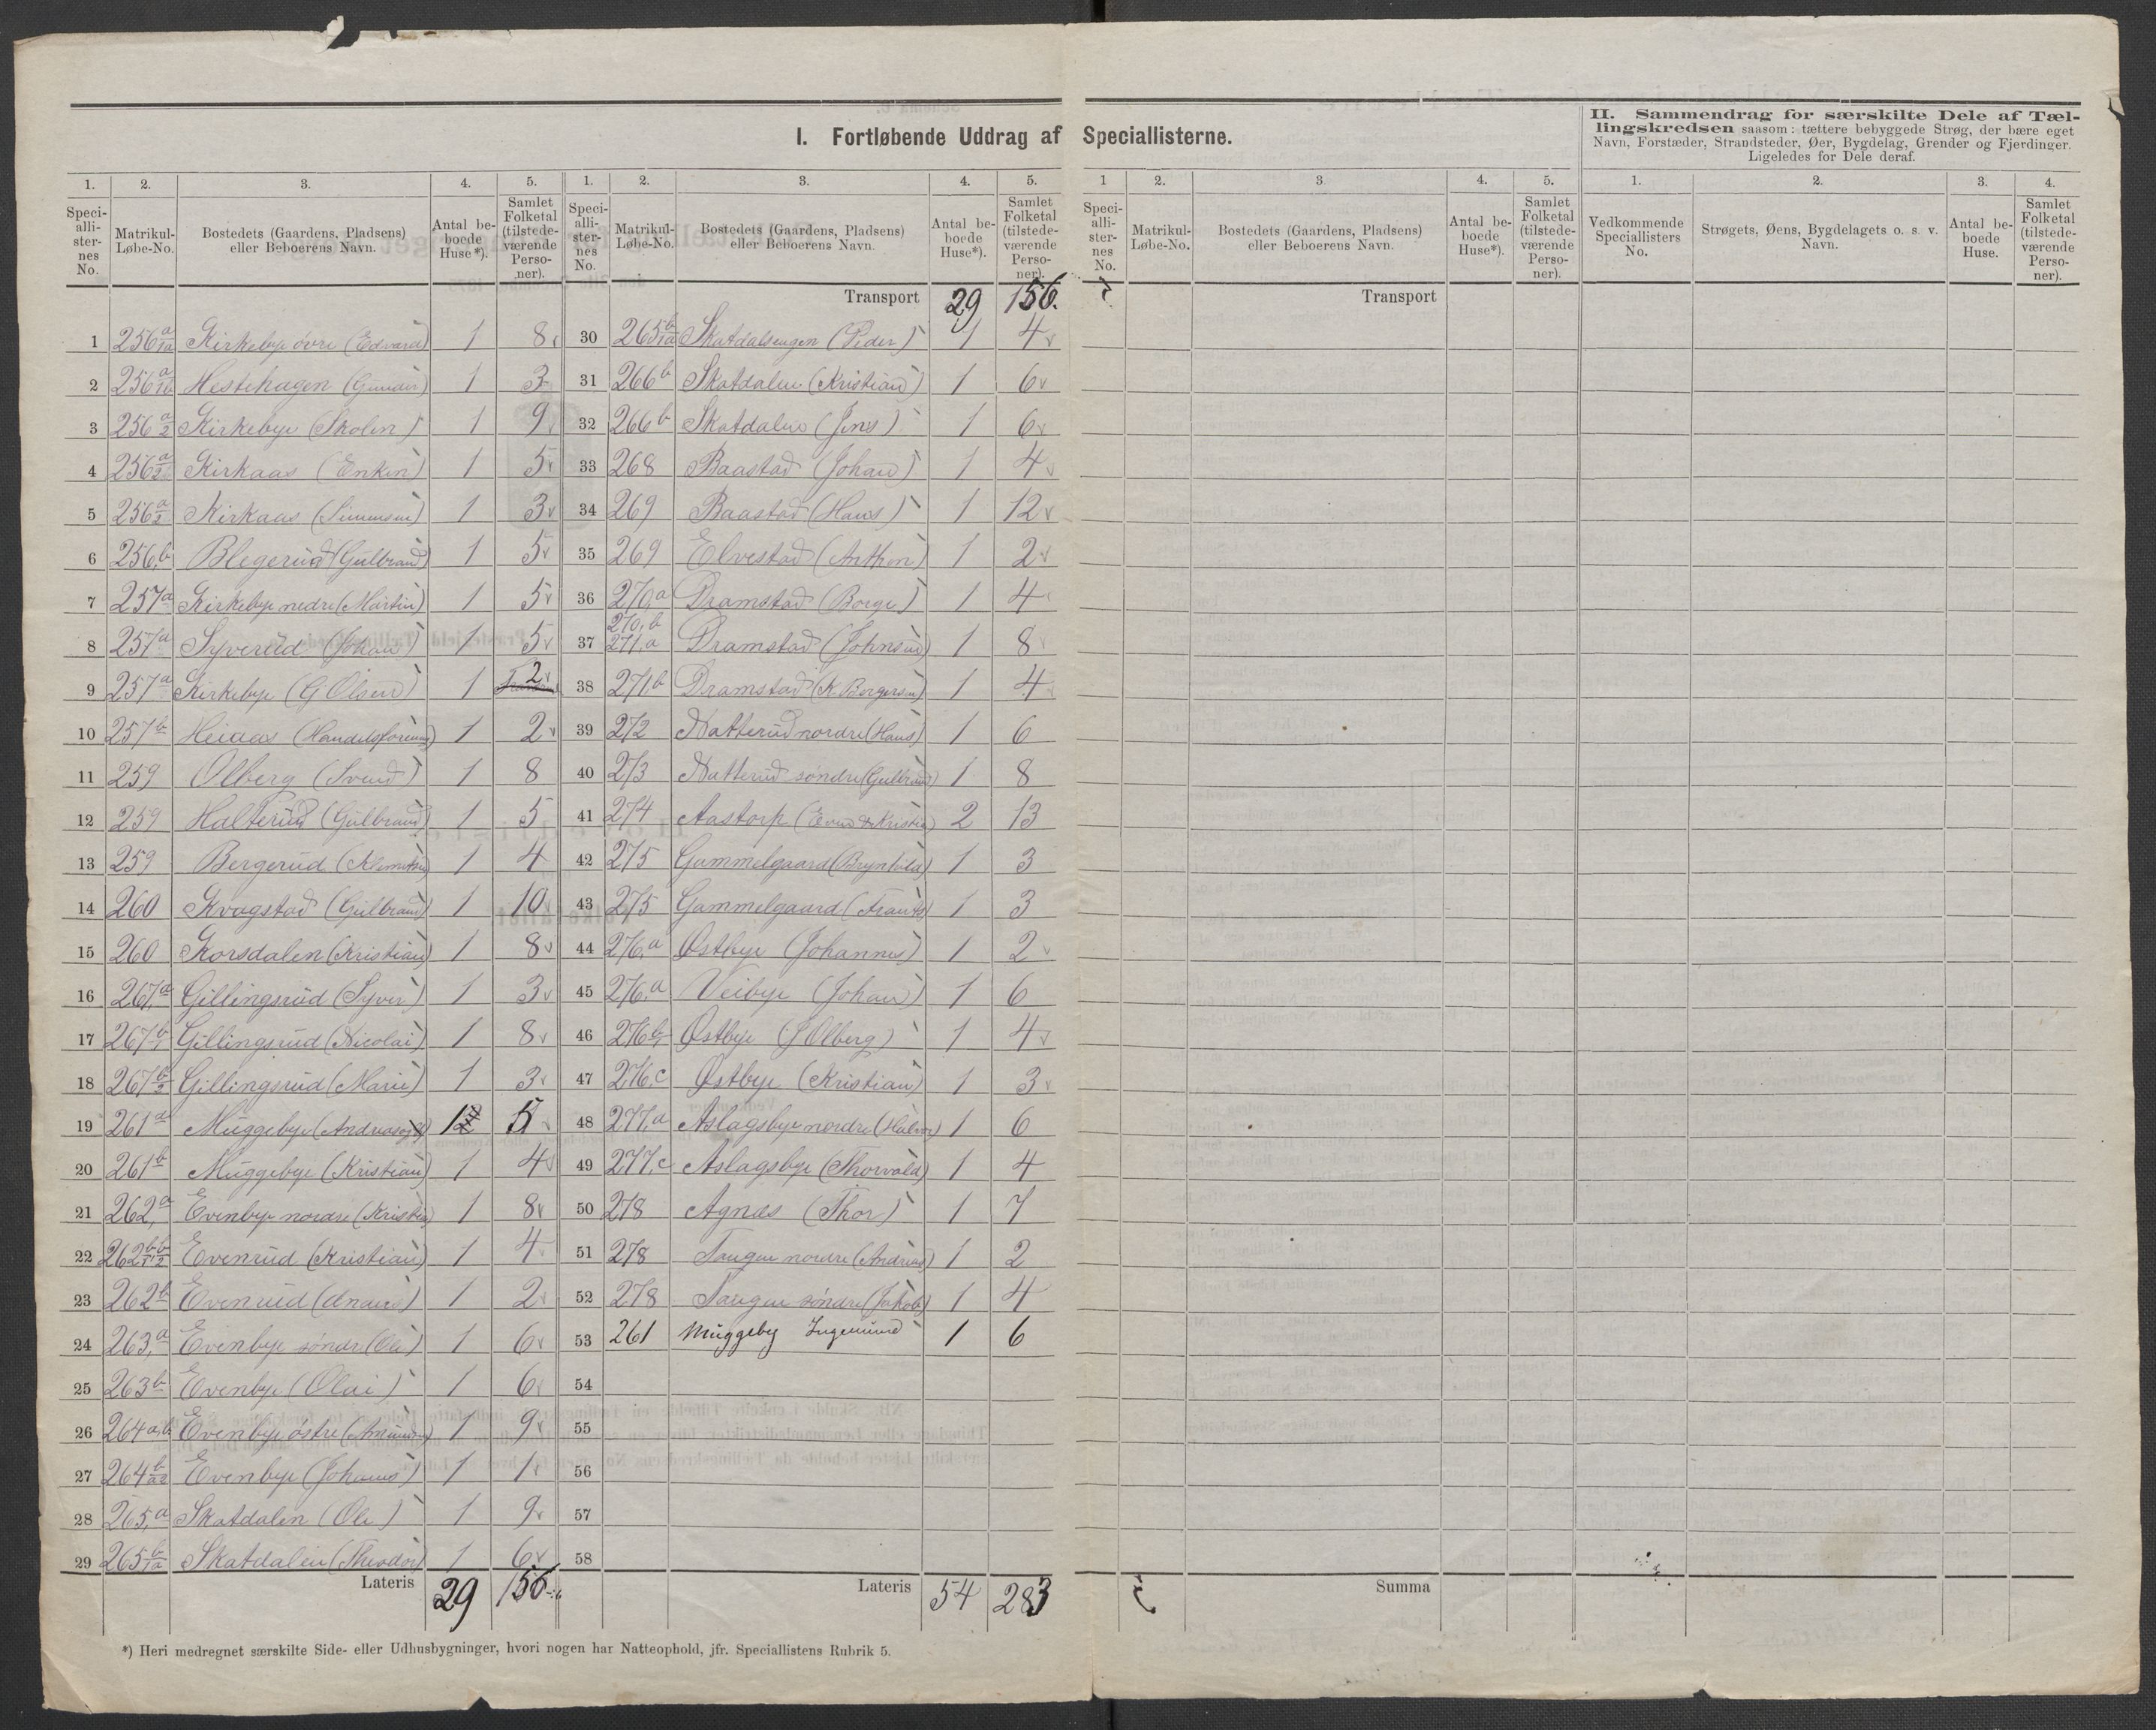 I. Fortløbende Uddrag af Speciallisterne.
II. Sammendrag for særskilte Dele af Tællingskredsen saasom: tættere bebyggede Strøg, der bære eget Navn, Forstæder, Strandsteder, Øer, Bygdelag, Grender og Fjerdinger. Ligeledes for Dele deraf.
1. 2. 3. 4. 5. 1. 2. 3. 4. 5. 1 2. 3 4. 5. 1. 2. 3. 4.
Speciallisternes No. Matrikul-Løbe-No. Bostedets (Gaardens, Pladsens) eller Beboerens Navn. Antal beboede Huse*). Samlet Folketal (tilstedeværende Personer).
Speciallisternes No. Matrikul-Løbe-No. Bostedets (Gaardens, Pladsens) eller Beboerens Navn. Antal beboede Huse*). Samlet Folketal (tilstedeværende Personer).
Speciallisternes No. Matrikul-Løbe-No. Bostedets (Gaardens, Pladsens) eller Beboerens Navn. Antal beboede Huse*). Samlet Folketal (tilstedeværende Personer).
Vedkommende Speciallisters No. Strøgets, Øens, Bygdelagets o. s. v. Navn. Antal beboede Huse. Samlet Folketal (tilstedeværende Personer).
Transport 29 156. Transport
1 256 a/1a Kirkebye övre (Edvard) 1 8
2 256 a/1b Hestehagen (Gunder) 1 3
3 256 a/2 Kirkebye (Skolen) 1 9
4 256 a Kirkaas (Enken) 1 5
5 256 a Kirkaas (Simensen) 1 3
6 256,b Blegerud (Gulbrand) 1 5
7 257a Kirkebye nedre (Martin) 1 5
8 257a Syverud (Johan) 1 5
9 257a Kirkebye (G Olsen) 1 2
10 257b Heiaas (Handelsforening) 1 2
11 259 Olberg (Svend) 1 8
12 259 Halterud (Gulbrand) 1 5
13 259 Bergerud (Klemetsen) 1 4
14 260 Kvagstad (Gulbrand) 1 10
15 260 Korsdalen (Kristian) 1 8
16 267,a Gillingsrud (Syver) 1 3
17 267 b/1 Gillingsrud (Nicolai) 1 8
18 267 b/2 Gillingsrud (Marie) 1 3
19 261a Muggebye (Andreas 1 5
20 261b Muggebye (Kristian) 1 4
21 262,a Evenbye nordre (Kristian) 1 8
22 262 Evenrud (Kristian) 1 4
23 262b Evenrud 1 2
24 263,a Evenbye söndre (Ole) 1 6
25 263b Evenbye (Olai) 1 6
26 264a,b Evenbye östre (Amund 1 9
27 264 Evenbye (Johanes) 1 1
28 265,a Skatdalen (Ole) 1 9
29 265 b/1a Skatdalen (Theodor) 1 6
Lateris 29 156
30 265 Skatdalsengen (Peder) 1 4
31 266b Skatdalen (Kristian) 1 6
32 266b Skatdalen (Jens) 1 6
33 268 Baastad (Johan) 1 4
34 269 Baastad (Hans) 1 12
35 269 Elvestad (Anthon) 1 2
36 270,a Dramstad (Borge) 1 4
37 270,b 271,a Dramstad (Johnsen) 1 8
38 271b Dramstad (K. Borgersen) 1 4
39 272 Natterud nordre (Hans) 1 6
40 273 Natterud söndre (Gulbrand) 1 8
41 274 Aastorp (Even & Kristian) 2 13
42 275 Gammelgaard (Brynhild) 1 3
43 275 Gammelgaard (Frants) 1 3
44 276,a Østbye (Johannes) 1 2
45 276,a Veibye (Johan) 1 6
46 276b, Østbye (J Olberg) 1 4
47 276,c Østbye (Kristian) 1 3
48 277,a Aslagsbye nordre (Halvor) 1 6
49 277,c Aslagsbye (Thorvald) 1 4
50 278 Agnæs (Thor) 1 7
51 278 Tangen nordre (Andreas) 1 2
52 278 Tangen söndre (Jakob) 1 4
53 261 Muggeby Ingemund 1 6
54
55
56
57
58
Lateris 54 283
Summa
*) Heri medregnet særskilte Side- eller Udhusbygninger, hvori nogen har Natteophold, jfr. Speciallistens Rubrik 5.